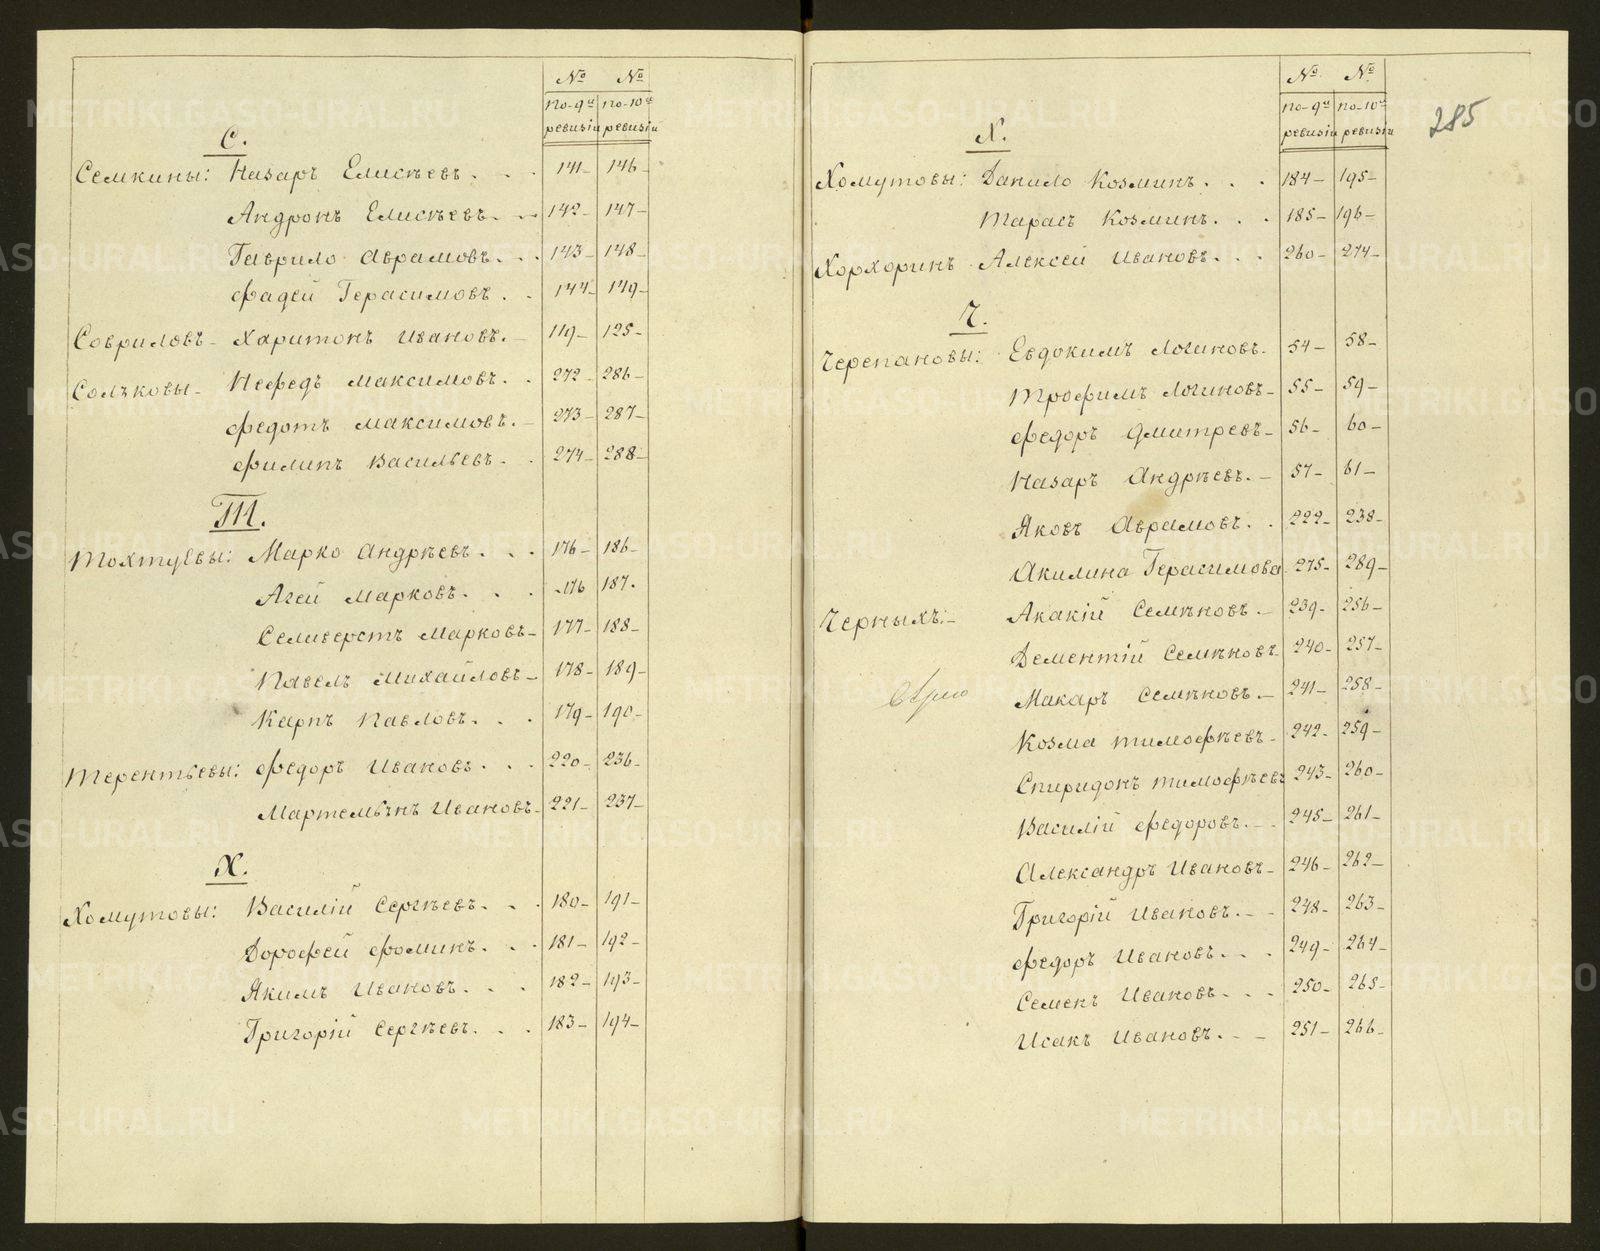 № №
по-9й по-10й
ревизіи ревизіи
С.
Семкины: Назаръ Елисѣевъ. . . 141- 146-
Андронъ Елисѣевъ. - - 142- 147-
Гаврило Аврамовъ. . . 143- 148-
Фадей Герасимовъ. . 144- 149-
Совриловъ- Харитонъ Ивановъ. - 119- 125-
Солъковы- Нефедъ Максимовъ. . 272- 286-
Федотъ Максимовъ. - 273- 287-
Филипъ Васильевъ. . 274- 288-
Т.
Тохтуевы: Марко Андрѣевъ. . . 176- 186-
Агей Марковъ. . . -176 187.
Селиверстъ Марковъ- 177- 188-
Павелъ Михайловъ- 178- 189-
Карпъ Павловъ. . . 179- 190-
Терентьевы: Федоръ Ивановъ. . . 220- 236-
Мартемьянъ Ивановъ- 221- 237-
Х.
Хомутовы: Василій Сергѣевъ. . . 180- 191-
Дорофей Фоминъ. . . 181- 192-
Якимъ Ивановъ. . . 182- 193-
Григорій Сергѣевъ. . . 183- 194-
№ №
по-9й по-10й
ревизіи ревизіи
285
Х.
Хомутовы: Данило Козминъ. . . 184- 195-
Тарасъ Козминъ. . . 185- 196-
Хорхоринъ Алексей Ивановъ. . . 260- 274-
Ч.
Черепановы: Евдокимъ Логиновъ. 54- 58-
Трофимъ Логиновъ- 55- 59-
Федоръ Дмитревъ- 56- 60-
Назаръ Андрѣевъ. - 57- 61-
Яковъ Аврамовъ. . 222- 238-
Акилина Герасимова 275- 289-
Черныхъ:- Акакій Семѣновъ. - 239- 256-
Дементій Семѣновъ- 240- 257-
Макаръ Семѣновъ. - 241- 258-
Козма Тимофѣевъ- 242- 259-
Спиридонъ Тимофѣевъ 243- 260-
Василій Федоровъ. - 245- 261-
Александръ Ивановъ- 246- 262-
Григорій Ивановъ. - - 248- 263-
Федоръ Ивановъ. . . 249- 264-
Семенъ Ивановъ. . . 250- 265-
Исакъ Ивановъ. - - 251- 266-
METRIKI.GASO-URAL.RU